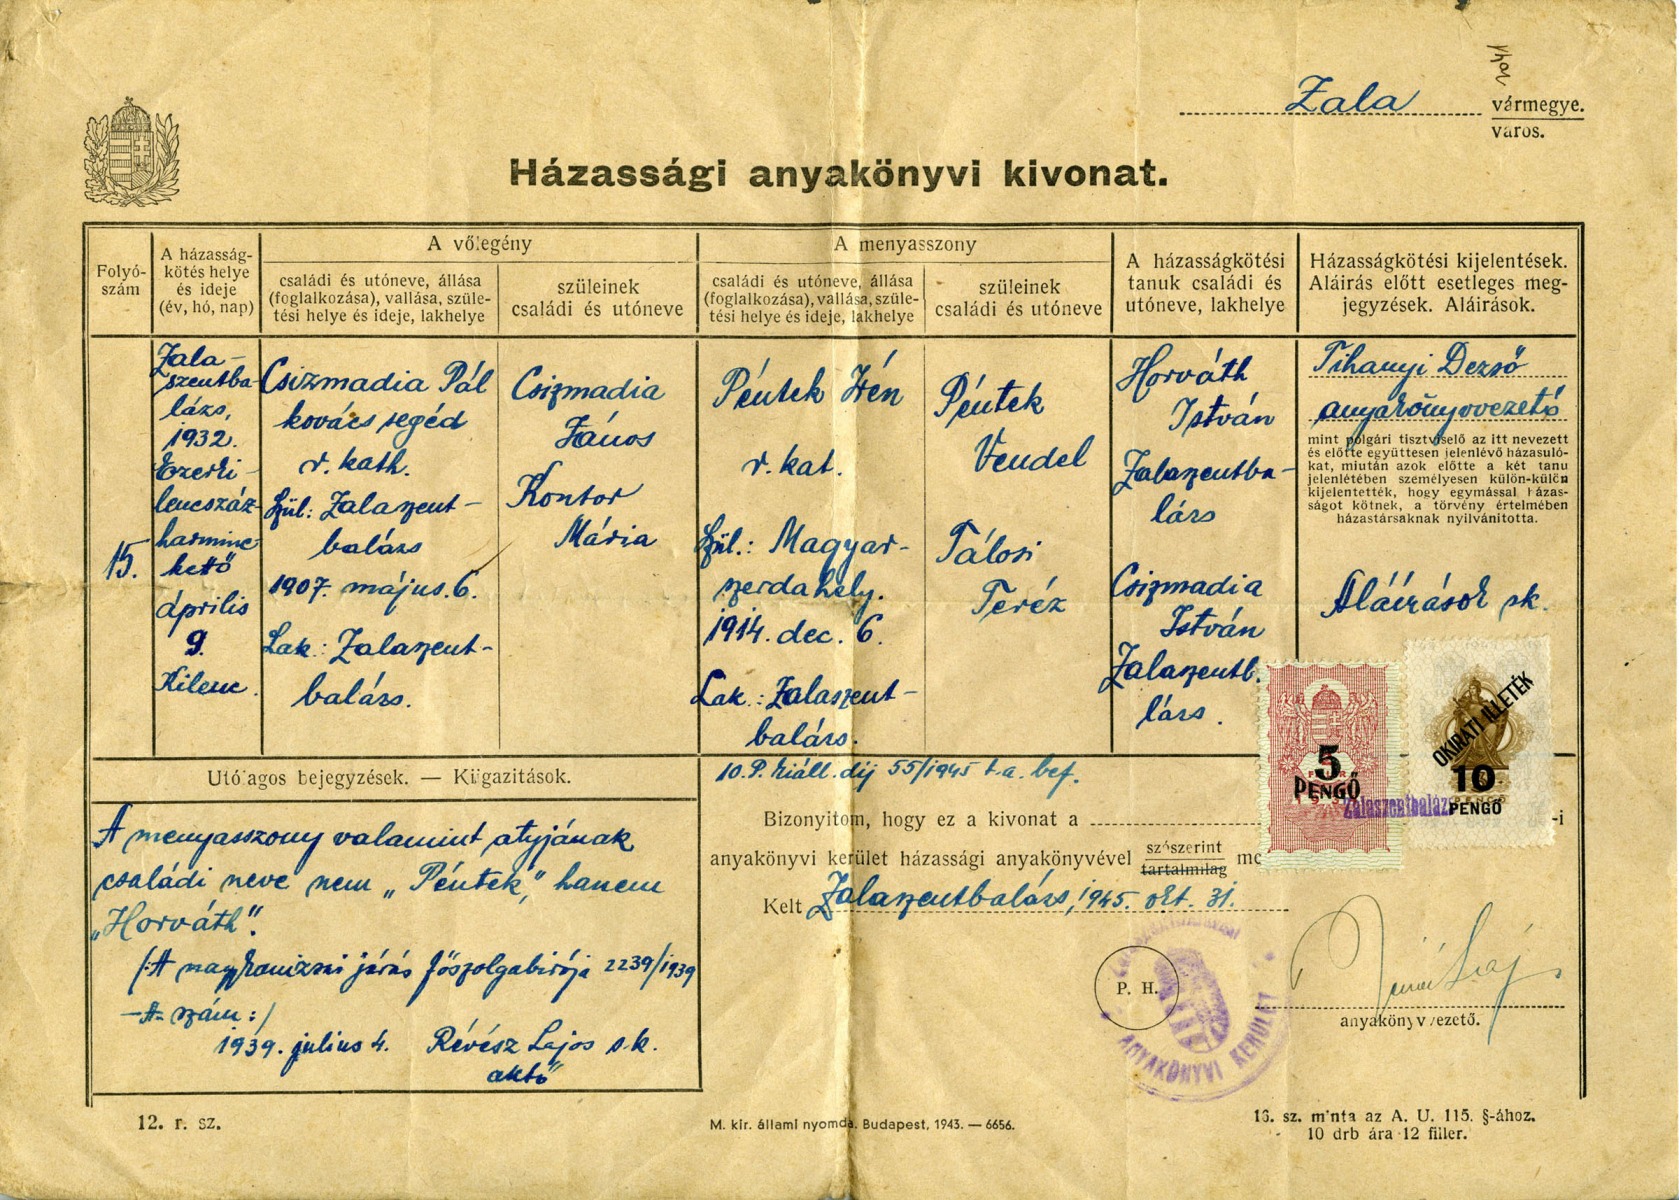 Zala
vármegye.
város.
Házassági anyakönyvi kivonat.
Folyó-
szám
A házasság-
kötés helye
és ideje
(év, hó, nap)
A vőlegény
családi és utóneve, állása
(foglalkozása), vallása, szüle-
tési helye és ideje, lakhelye
szüleinek
családi és utóneve
A menyasszony
családi és utóneve, állása
(foglalkozása), vallása, szüle-
tési helye és ideje, lakhelye
szüleinek
családi és utóneve
A házasságkötési
tanuk családi és
utóneve, lakhelye
Házasságkötési kijelentések.
Aláírás előtt esetleges meg-
jegyzések. Aláírások.
15.
Zala-
szentba-
lázs,
1932.
Ezerki-
lencszáz-
harminc-
kettő
április
9.
Kilenc.
Csizmadia Pál
kovács segéd
r. kath.
Szül: Zalaszent-
balázs
1907. május. 6.
Lak: Zalaszent-
balázs.
Csizmadia
János
Kontor
Mária
Péntek Irén
r. kat.
Szül.: Magyar-
szerdahely.
1914. dec. 6.
Lak: Zalaszent-
balázs.
Péntek
Vendel
Tálosi
Teréz
Horváth
István
Zalaszentba-
lázs
Csizmadia
István
Zalaszentb.
lázs.
Tihanyi Dezső
anyakönyvvezető
mint polgári tisztviselő az itt nevezett
és előtte együttesen jelenlévő házasuló-
kat, miután azok előtte a két tanu
jelenlétében személyesen külön-külön
kijelentették, hogy egymással házas-
ságot kötnek, a törvény értelmében
házastársaknak nyilvánította.
Aláírások sk.
5
PENGŐ
OKIRATI ILLETÉK
10
PENGŐ
Zalaszentbalázs
Utólagos bejegyzések. — Kiigazitások.
A menyasszony valamint atyjának
családi neve nem „Péntek," hanem
„Horváth".
/:A nagykanizsai járás főszolgabirója 2239/1939
-A- szám:/
1939. július 4. Révész Lajos s.k.
aktő
10.P. kiáll. díj 55/1945 t.a. bef.
Bizonyitom, hogy ez a kivonat a -i
anyakönyvi kerület házassági anyakönyvével szószerint
tartalmilag
Kelt Zalaszentbalázs, 1945. okt. 31.
P. H.
ANYAKÖNYVI KERÜLET
anyakönyvvezető.
12. r. sz.
M. kir. állami nyomda. Budapest, 1943. — 6656.
16. sz. minta az A. U. 115. §-ához.
10 drb ára 12 fillér.